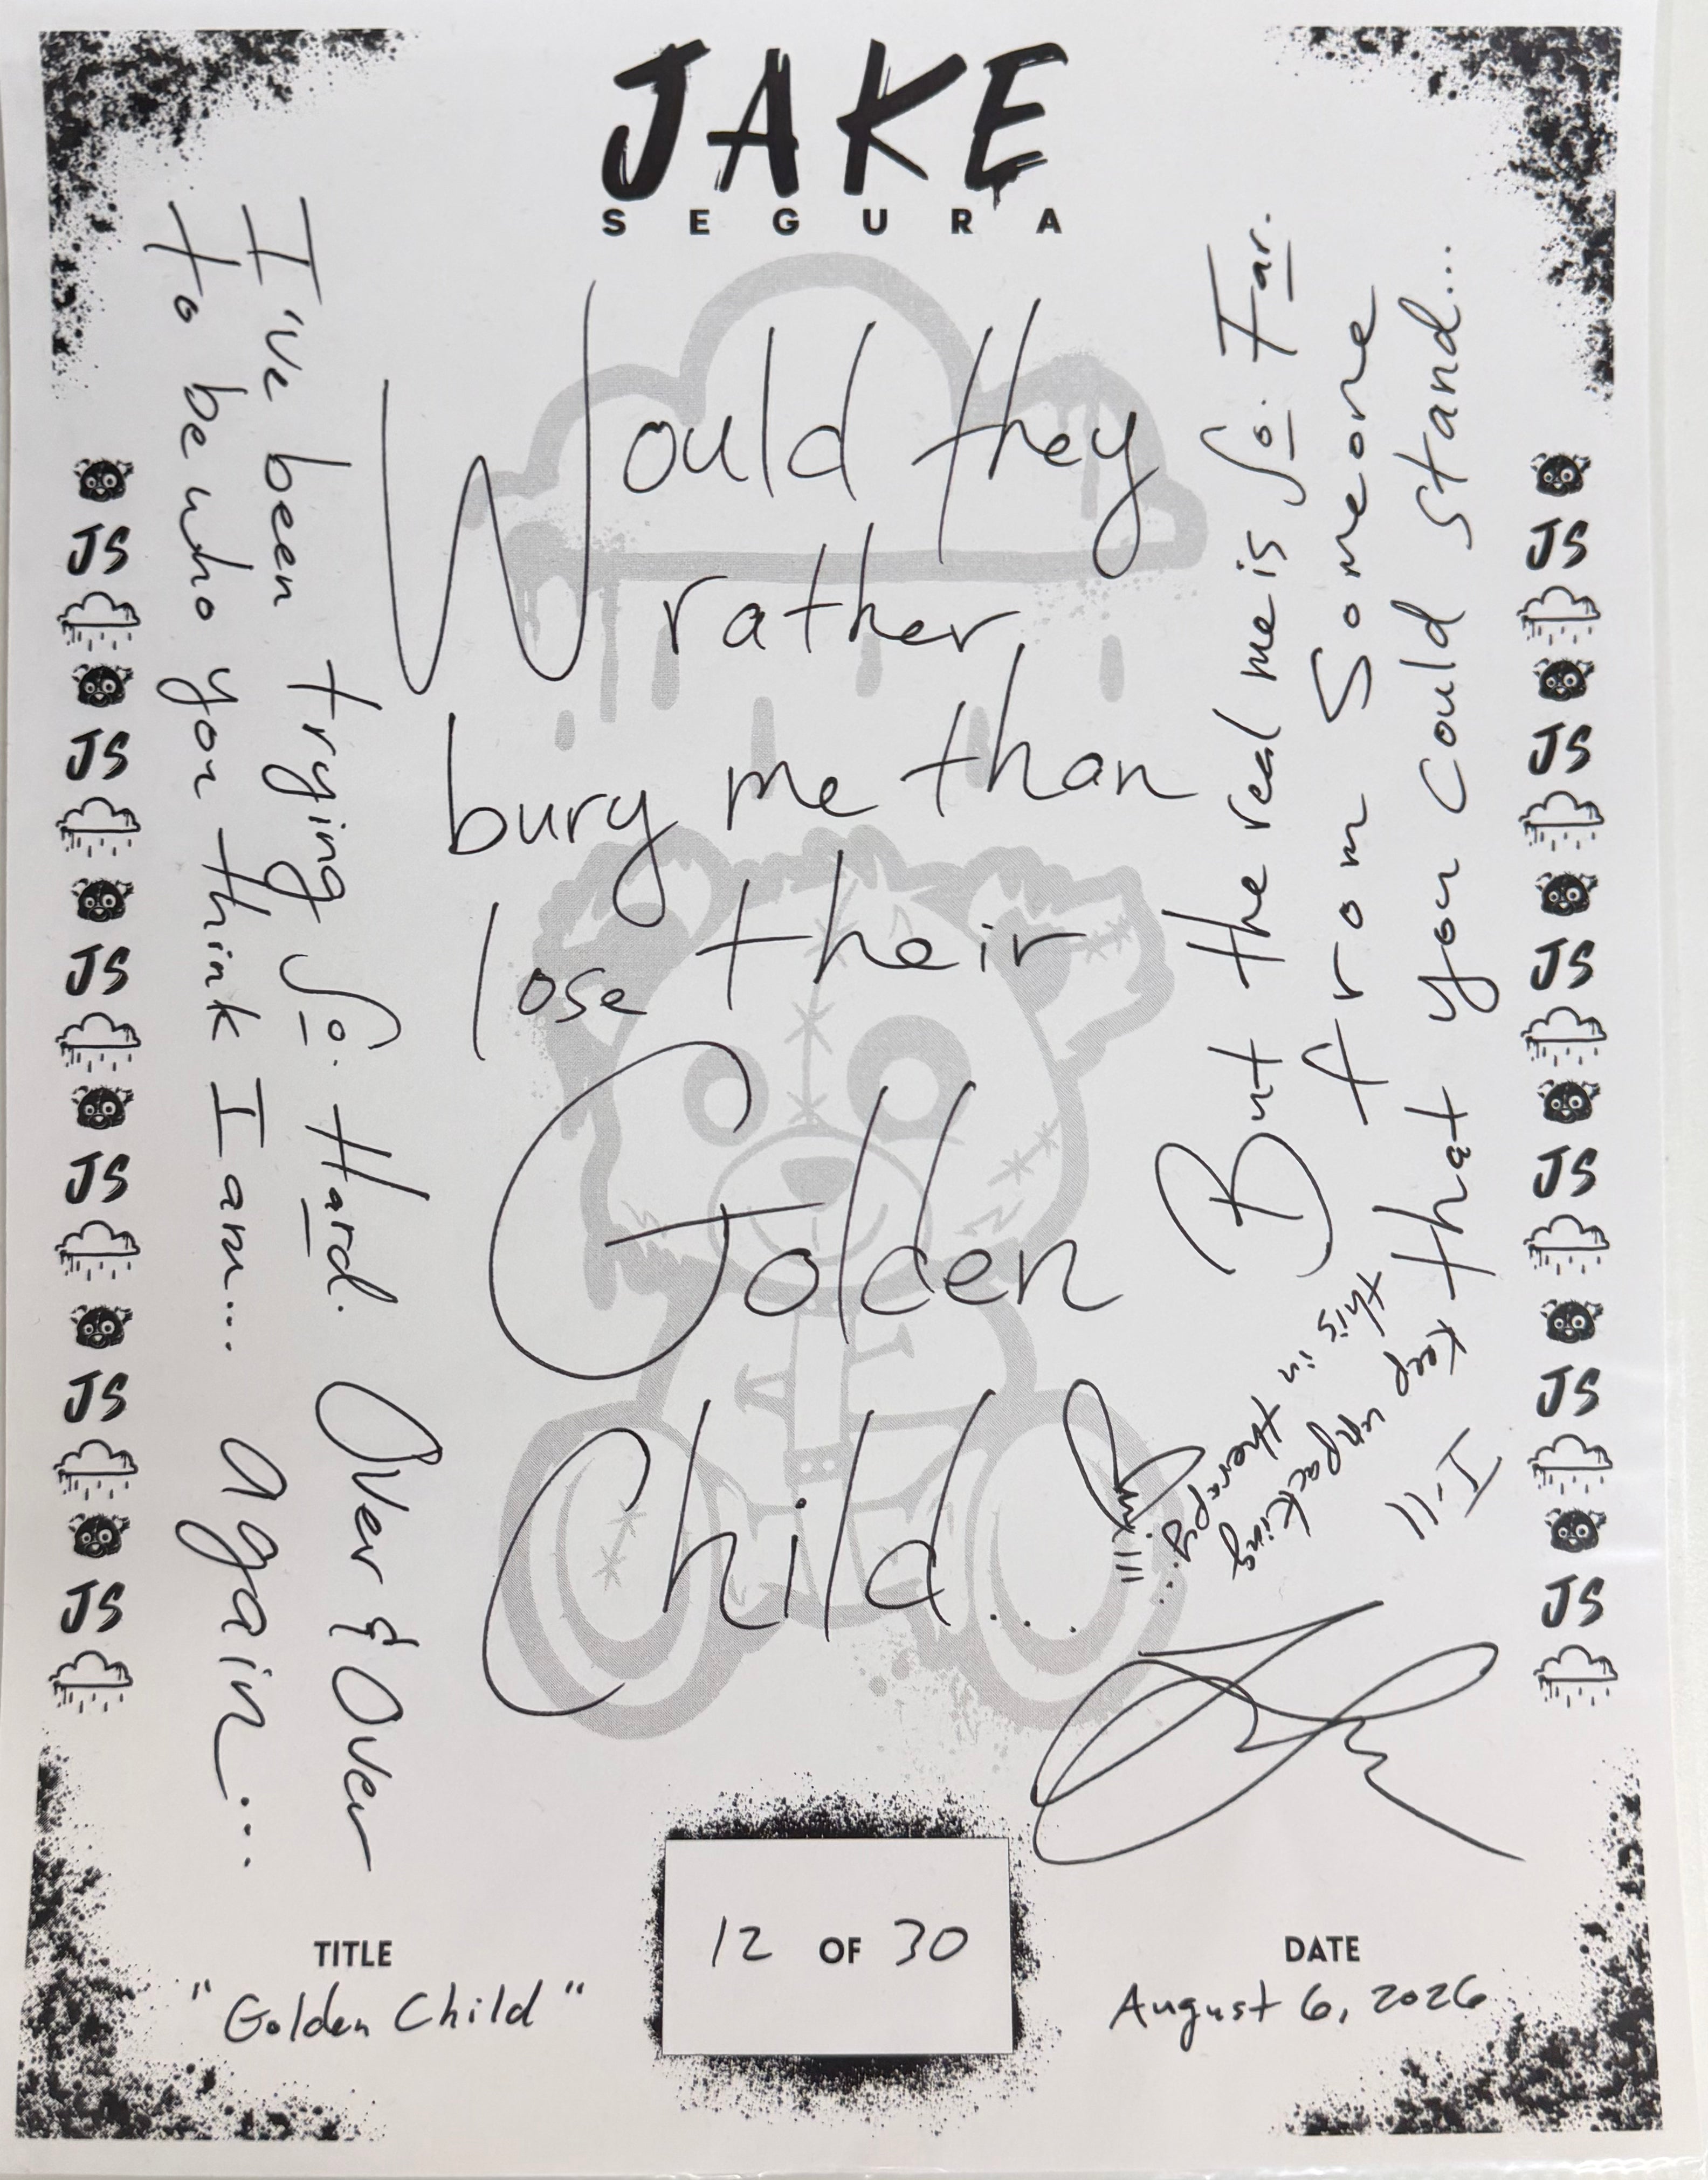 JAKE
SEGURA
I've been trying So. Hard. Over & Over
to be who you think I am... again...
Would they
rather
bury me than
lose their
Golden
Child...
But the real me is So. Far.
from Someone
that you could stand...
I'll
keep unpacking
this in therapy...
JS
JS
JS
JS
JS
JS
JS
JS
JS
JS
JS
JS
TITLE
"Golden Child"
12 OF 30
DATE
August 6, 2026